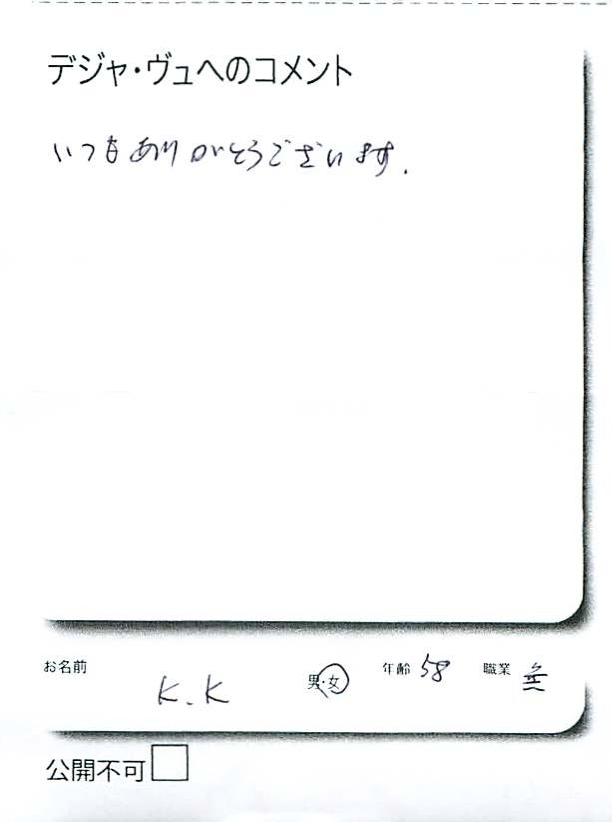 デジャ・ヴュへのコメント
いつもありがとうございます.
お名前 K.K 男・女 年齢 58 職業 無
公開不可